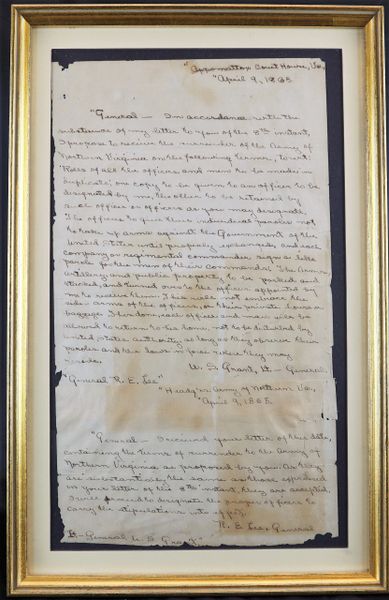 "Appomattox Court House, Va,
"April 9, 1865
"General — In accordance with the
substance of my letter to you of the 8th instant,
I propose to receive the surrender of the Army of
Northern Virginia on the following terms, to wit:
Rolls of all the officers and men to be made in
duplicate, one copy to be given to an officer to be
designated by me, the other to be retained by
such officer or officers as you may designate.
The officers to give their individual paroles not
to take up arms against the Government of the
United States until properly exchanged, and each
company or regimental commander sign a like
parole for the men of their commands. The Arms,
artillery and public property to be parked and
stacked, and turned over to the officer appointed by
me to receive them. This will not embrace the
side-arms of the officers, or their private horses or
baggage. This done, each officer and man will be
allowed to return to his home, not to be disturbed by
United States authority as long as they observe their
paroles and the laws in force where they may
reside.
U. S. Grant, Lt-General.
"General R. E. Lee"
"Headqrs. Army of Northern Va,
"April 9, 1865.
"General — I received your letter of this date,
containing the terms of surrender to the Army of
Northern Virginia as proposed by you. As they
are substantially the same as those expressed
in your letter of the 8th instant they are accepted.
I will proceed to designate the proper officers to
carry the stipulations into effect.
R. E. Lee, General
Lt-General U. S. Grant"